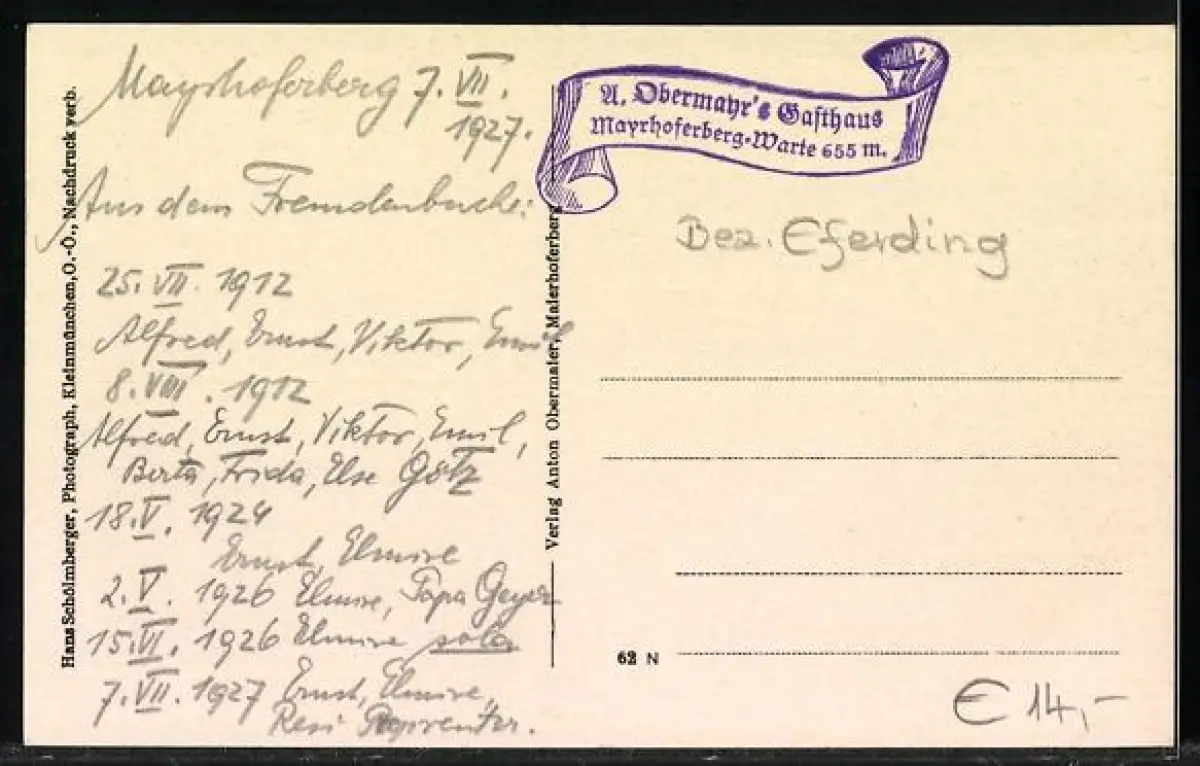 Mayrhoferberg 7. VII.
1927.
Aus dem Fremdenbuche:
25. VII. 1912
Alfred, Ernst, Viktor, Emil
8. VIII. 1912
Alfred, Ernst, Viktor, Emil,
Berta, Frida, Else Götz
18. V. 1924
Ernst, Elmire
2. V. 1926 Elmire, Papa Geyer
15. VI. 1926 Elmire sola
7. VII. 1927 Ernst, Elmire,
Resi
Hans Schölmberger, Photograph, Kleinmünchen, O.-Ö., Nachdruck verb.
Verlag Anton Obermaier, Maierhoferberg
A. Obermayr's Gasthaus
Mayrhoferberg-Warte 655 m.
Bez. Eferding
62 N
€ 14,-